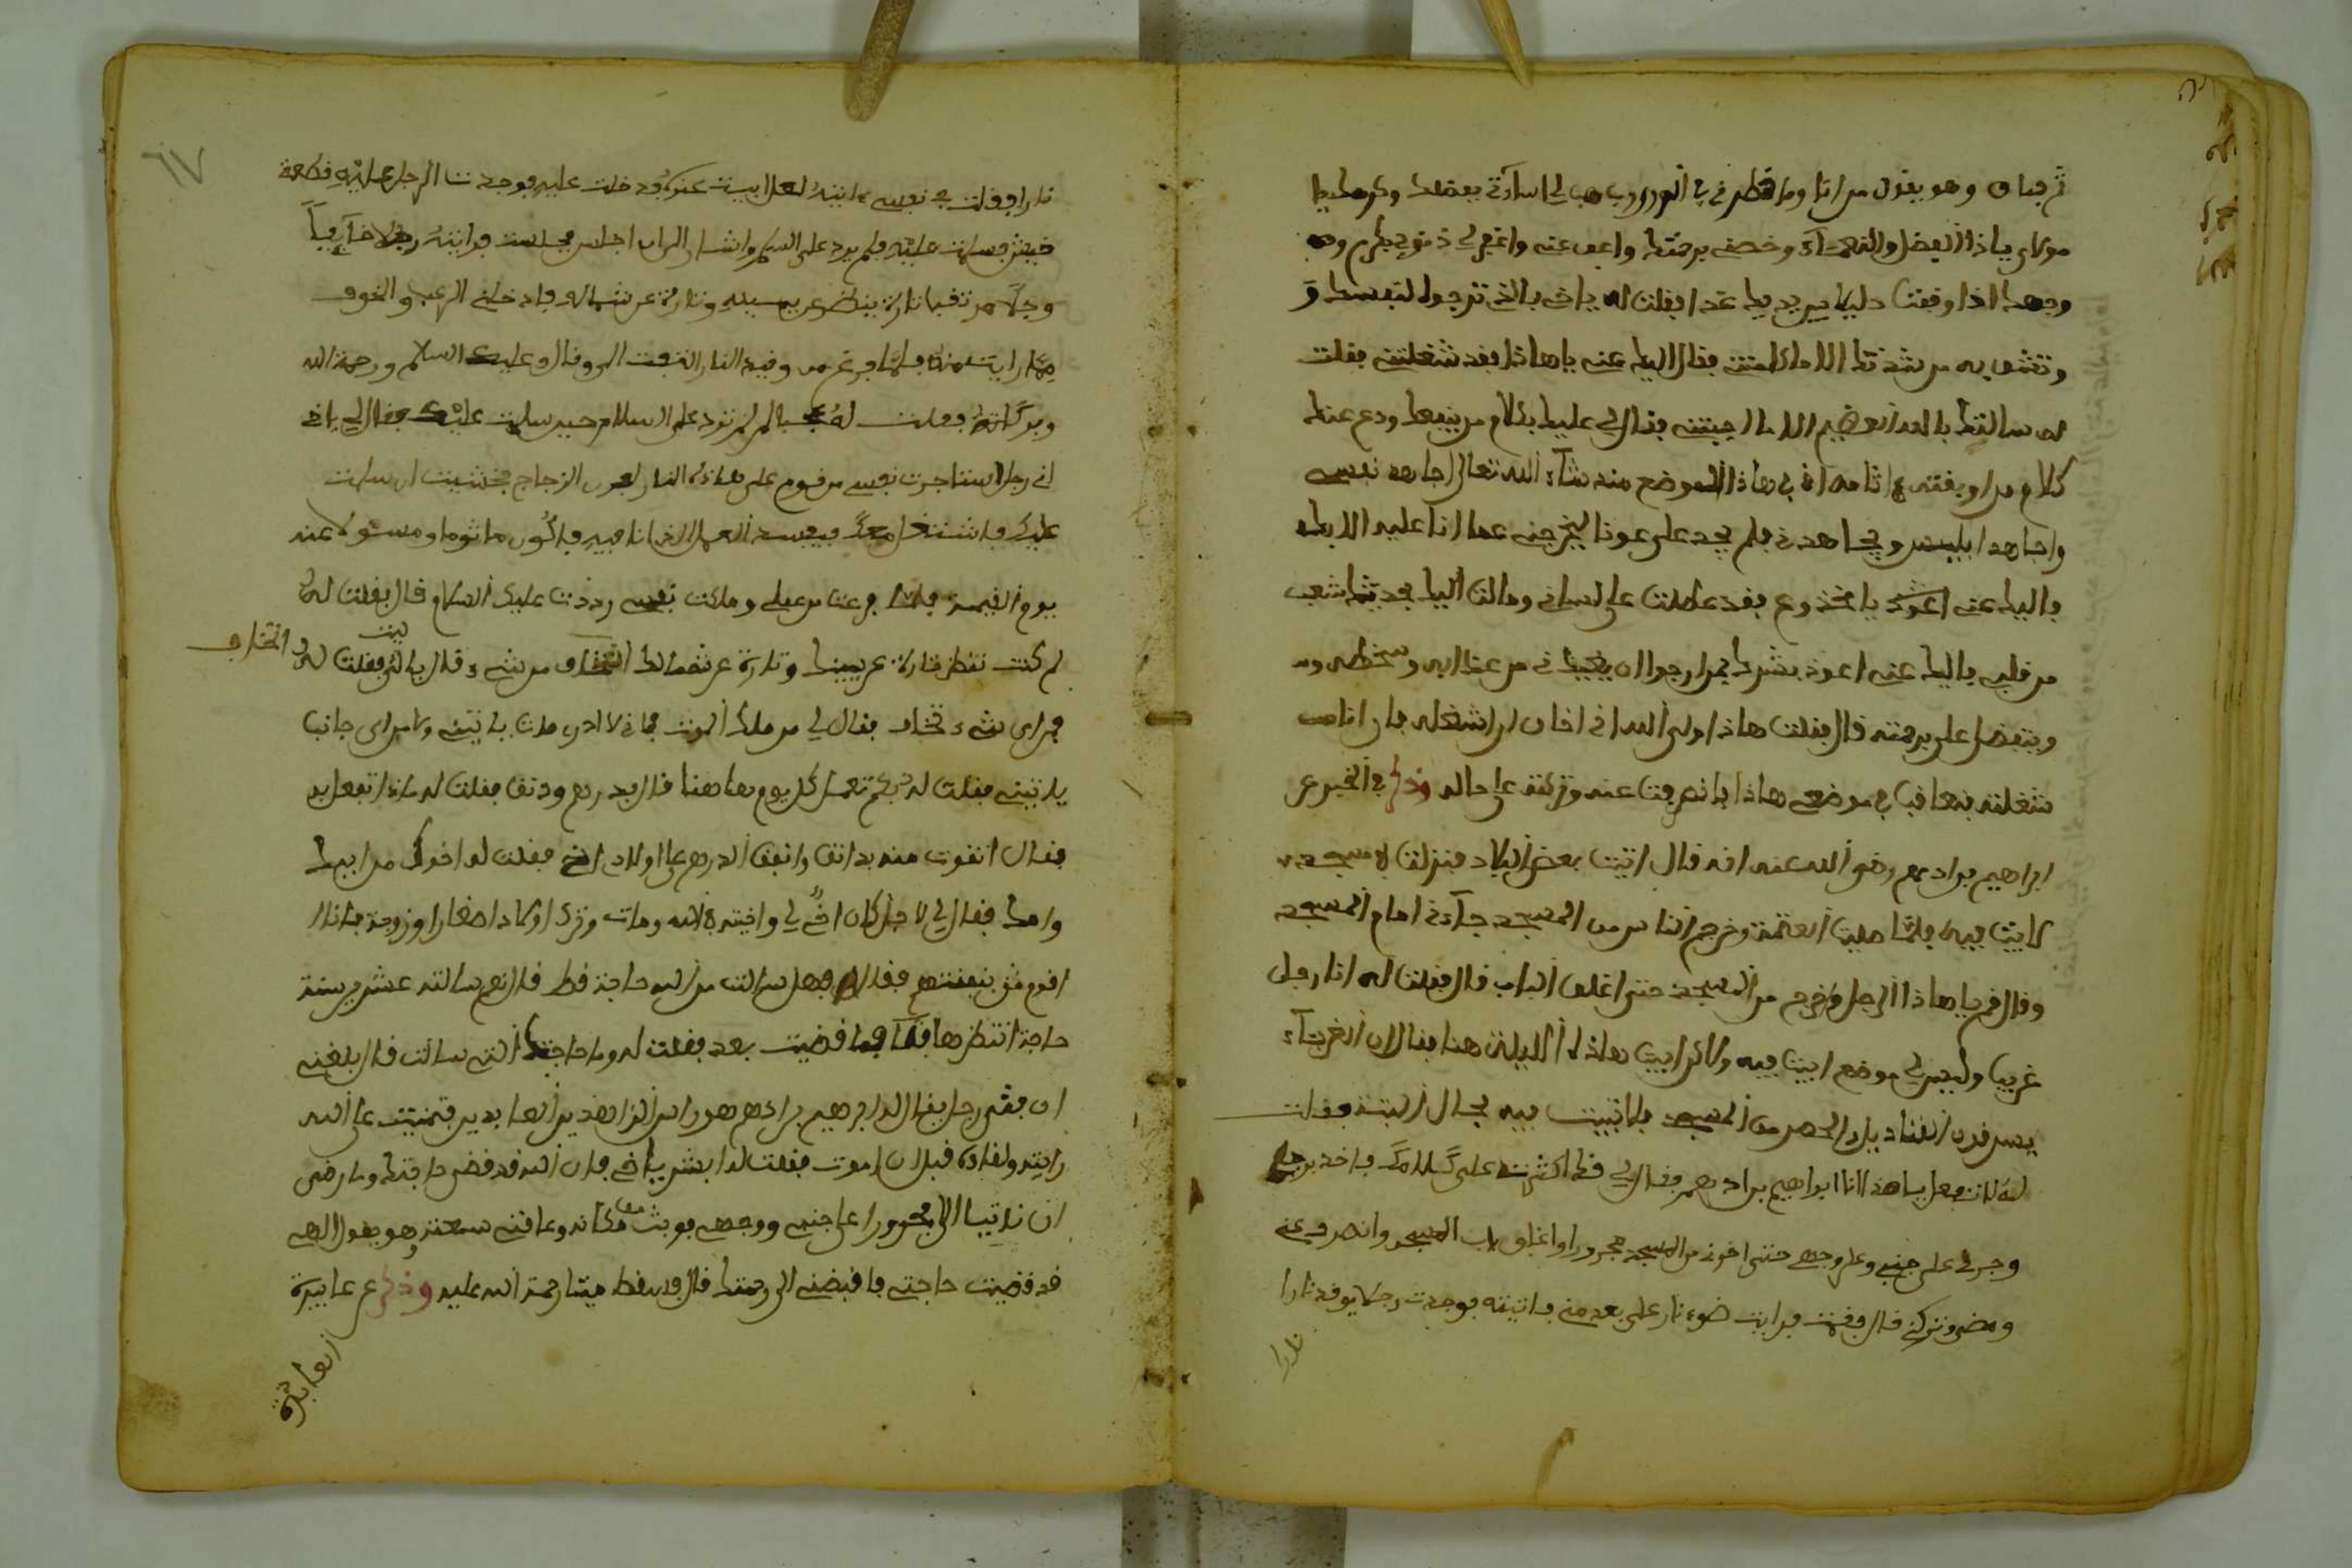 ثم فاق وهو يقول من انا وما خطرني يا رب هب لي اساءتي بفضلك
مولاي ياذا الفضل والنعمآء وخصني برحمتك واعف عني واغفر لي ذنوبي بكرم وجهـ
وجهك اذا وقفت دليلا بين يديك غدا فقلت له يا أخي بالذي ترجوا لنفسك و
وتثق به من شدتك الا ما كلمتني فقال اليك عني يا هاذا فقد شغلتني فقلت
له سالتك بالله العظيم الا ما اجبتني فقال لي عليك بكلام من ينفعك ودع عنك
كلام من اوبقته اثامه اني في هاذا الموضع منذ شآء الله تعالى اجاهد نفسي
واجاهد ابليس ويجاهدني فلم يجد علي عونا ليخرجني عما انا عليه الا بك
فاليك عني يا مخدوع فقد عطلت علي لساني ومالت اليك بحديثك شعب
من قلبي فاليك عني اعوذ بشرك بمن ارجوا ان يغيثني من عذابه وسخطه
ويتفضل علي برحمته قال فقلت هاذا ولي الله اني اخاف ان اشغله
شغلته فنعاقب في موضعي هاذا فانصرفت عنه وتركته على حاله وذكر في الخبر عن
ابراهيم بن ادهم رضي الله عنه انه قال اتيت بعض البلاد فنزلت في مسجد
لابيت فيه فلما صليت العتمة وخرج الناس من المسجد جآءني امام المسجد
وقال قم يا هاذا الرجل واخرج من المسجد حتى اغلق الباب قال فقلت له انا رجل
غريب وليس لي موضع ابيت فيه ولاكن ابيت هاذه الليلة هنا فقال ان الغرباء
يسرقون القناديل والحصر من المسجد فلا تبيت فيه بحال البتة فقلت
له لا تفعل يا هذا انا ابراهيم بن ادهم فقال لي قد اكثرت علي كلامك فاخذ برجلي
وجرني على جنبي وعلى وجهي حتى اخرجني من المسجد مجرورا واغلق باب المسجد وانصرف عني
ومضى وتركني قال فقمت فرايت ضوء نار على بعد مني فاتيته فوجدت رجلا يوقد نارا
نارا
٦٧
نارا فقلت في نفسي اتيته لعلي ابيت عنده فدخلت عليه فوجدت الرجل عليه قطعة
خيش فسلمت عليه فلم يرد علي السلام واشار الي ان اجلس فجلست فرايته رجلا خآيفاً
وجلا مرتقبا تارة ينظر عن يمينه وتارة عن شماله فادخلني الرعب والخوف
مما رايت منه فلما فرغ من وقيد النار التفت الي وقال وعليك السلام ورحمة الله
وبركاته فقلت له عجبا لم لم ترد علي السلام حين سلمت عليك فقال لي يا اخي
اني رجل استاجرت نفسي من قوم على هاذه النار لعمل الزجاج فخشيت ان سلمت
عليك فاشتغل معك فيفسد العمل الذي انا فيه فاكون ماثوما ومسئولا عنه
يوم القيمة فلما فرغت من عملي وملكت نفسي رددت عليك السلام قال فقلت له
لم كنت تنظر تارة عن يمينك وتارة عن شمالك اتخاف من شيء قال بلى فقلت له
اتخاف
من اي شيء تخاف فقال لي من ملك الموت فاني لا ادري متى ياتيني ولا من اي جانب
ياتيني فقلت له بكم تعمل كل يوم هاهنا قال بدرهم ودنق فقلت له ماذا تفعل به
فقال اتقوت منه بدانق وانفق الدرهم على اولاد اخي فقلت له اخوك من ابيك
وامك فقال لي لا بل كان اخ لي واخيته في الله ومات وترك اولادا صغارا وزوجة فانا
اقوم بنفقتهم فقلت له فهل سالت من الله حاجة قط قال نعم سالته عشرين سنة
حاجة انتظرها فما قضيت بعد فقلت له وما حاجتك التي سالت قال بلغني
ان فتى رجل يقال له ابرهيم بن ادهم هو راس الزاهدين العابدين فتمنيت على الله
رايته ولقاءه قبل ان اموت فقلت له ابشر يا اخي فان الله قد قضى حاجتك وما رضي
ان ناتيك الا مجرورا على جنبي ووجهي فوثب من مكانه وعانقني سمعته وهو يقول الهي
قد قضيت حاجتي فاقبضني الى رحمتك قال فسقط ميتا رحمة الله عليه وذكر عن عابدة
العابدة